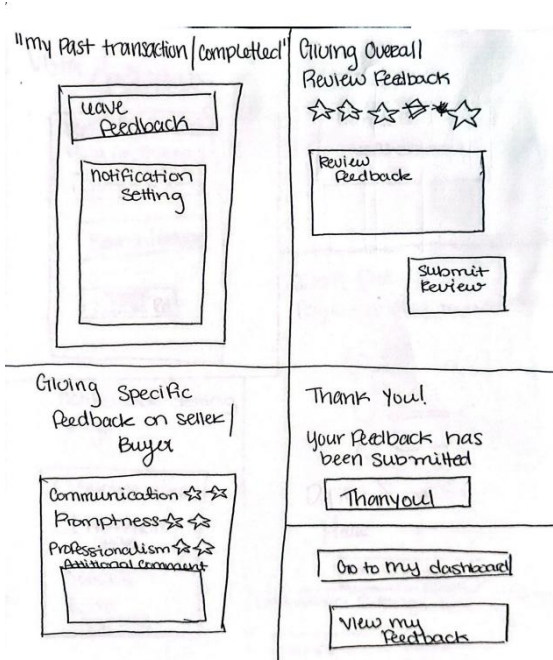 "my Past transaction/completled"
Leave
Feedback
notification
Setting
Giving Overall
Review Feedback
Review
Feedback
Submit
Review
Giving Specific
Feedback on seller/
Buyer
Communication
Promptness
Professionalism
Attitional comment
Thank You!
Your Feedback has
been Submitted
Thanyou!
Go to my dashboard
View my
Feedback